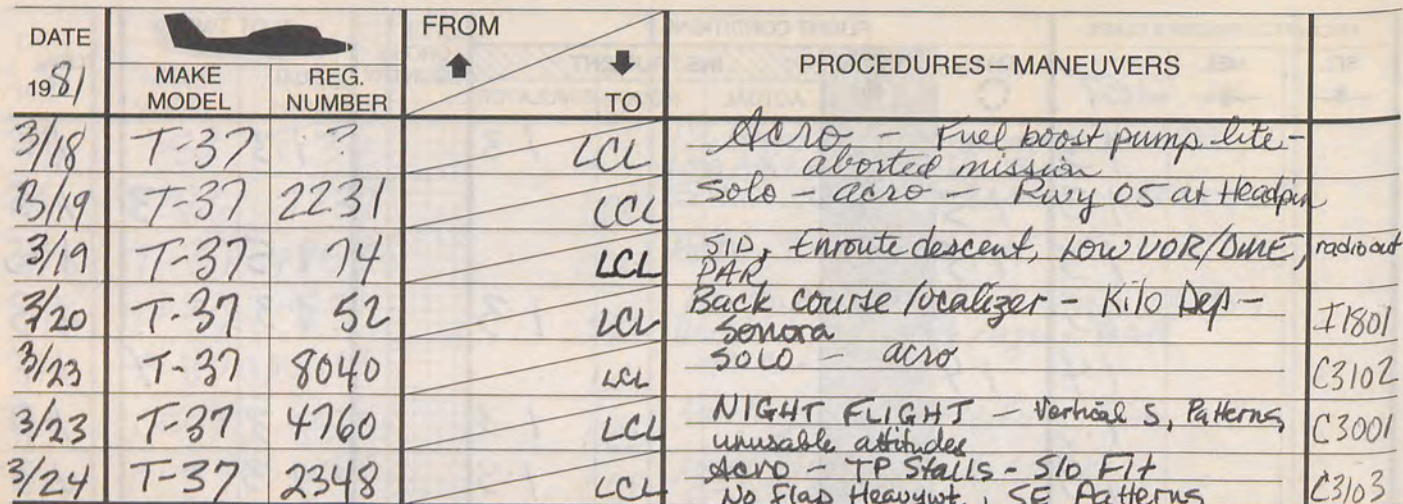 DATE
1981
MAKE MODEL
REG. NUMBER
FROM
TO
PROCEDURES – MANEUVERS
3/18 T-37 ? LCL Acro - Fuel boost pump lite -
aborted mission
3/19 T-37 2231 LCL Solo - acro - Rwy 05 at Headpin
3/19 T-37 74 LCL SID, Enroute descent, Low VOR/DME, radio out
PAR
3/20 T-37 52 LCL Back course localizer - Kilo Dep -
Sonora I1801
3/23 T-37 8040 LCL SOLO - acro C3102
3/23 T-37 4760 LCL NIGHT FLIGHT - Vertical S, Patterns,
unusable attitudes C3001
3/24 T-37 2348 LCL Acro - TP Stalls - Slo Flt
No Flap Heavywt., SE Patterns C3103